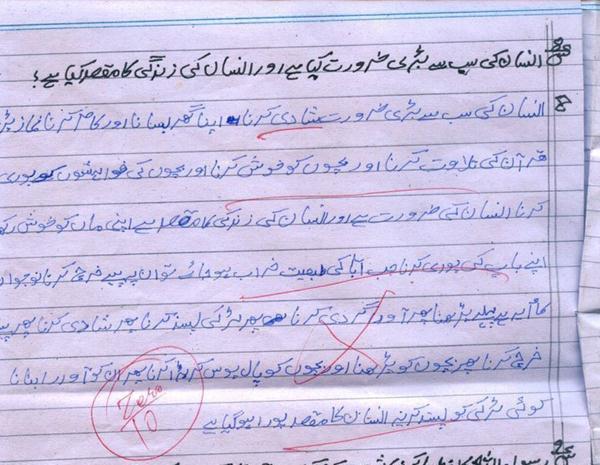 انسان کی سب سے بڑی ضرورت کیا ہے اور انسان کی زندگی کا مقصد کیا ہے؟
انسان کی سب سے بڑی ضرورت شادی کرنا اپنا گھر بسانا اور کام کرنا نماز پڑ
قرآن کی تلاوت کرنا اور بچوں کو خوش کرنا اور بچوں کی خواہشوں کو پوری
کرنا انسان کی ضرورت ہے اور انسان کی زندگی کا مقصد ہے اپنی ماں کو خوش رکھ
اپنے باپ کی پوری کرنا جب ابا کی طبیعت خراب ہو جائے تو ان پہ پیسے خرچ کرنا نوجوان
کا یہ ہے پہلے پڑھنا پھر آوارگردی کرنا پھر لڑکی پسند کرنا پھر شادی کرنا پھر
خرچ کرنا پھر بچوں کو پڑھنا اور بچوں کو پال پوس کر بڑا کرنا پھر ان کو آوارا بنانا
کوئی لڑکی کو پسند کرلے انسان کا مقصد پورا ہو گیا ہے
Zero
10